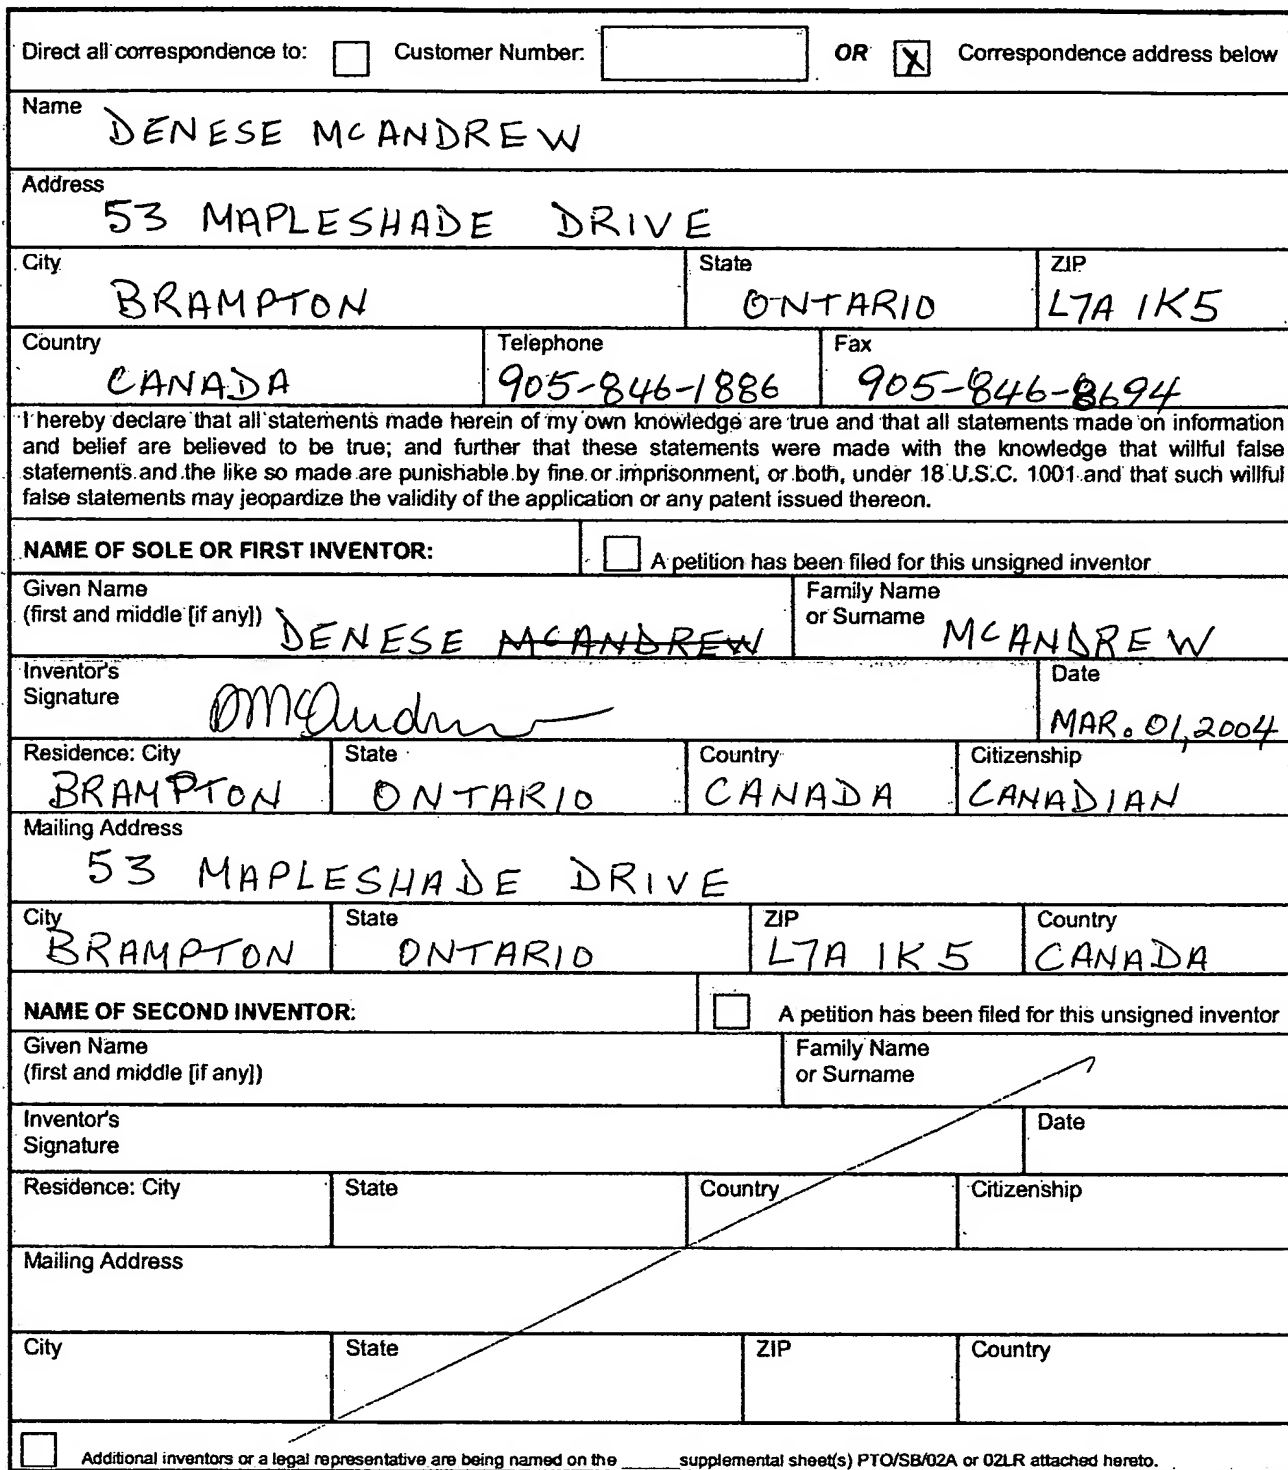 Direct all correspondence to: Customer Number: OR X Correspondence address below
Name
DENESE MCANDREW
Address
53 MAPLESHADE DRIVE
City State ZIP
BRAMPTON ONTARIO L7A 1K5
Country Telephone Fax
CANADA 905-846-1886 905-846-8694
I hereby declare that all statements made herein of my own knowledge are true and that all statements made on information
and belief are believed to be true; and further that these statements were made with the knowledge that willful false
statements and the like so made are punishable by fine or imprisonment, or both, under 18 U.S.C. 1001 and that such willful
false statements may jeopardize the validity of the application or any patent issued thereon.
NAME OF SOLE OR FIRST INVENTOR: A petition has been filed for this unsigned inventor
Given Name Family Name
(first and middle [if any]) DENESE MCANDREW or Surname MCANDREW
Inventor's Date
Signature DMcAndrew MAR. 01, 2004
Residence: City State Country Citizenship
BRAMPTON ONTARIO CANADA CANADIAN
Mailing Address
53 MAPLESHADE DRIVE
City State ZIP Country
BRAMPTON ONTARIO L7A 1K5 CANADA
NAME OF SECOND INVENTOR: A petition has been filed for this unsigned inventor
Given Name Family Name
(first and middle [if any]) or Surname
Inventor's Date
Signature
Residence: City State Country Citizenship
Mailing Address
City State ZIP Country
Additional inventors or a legal representative are being named on the _____ supplemental sheet(s) PTO/SB/02A or 02LR attached hereto.